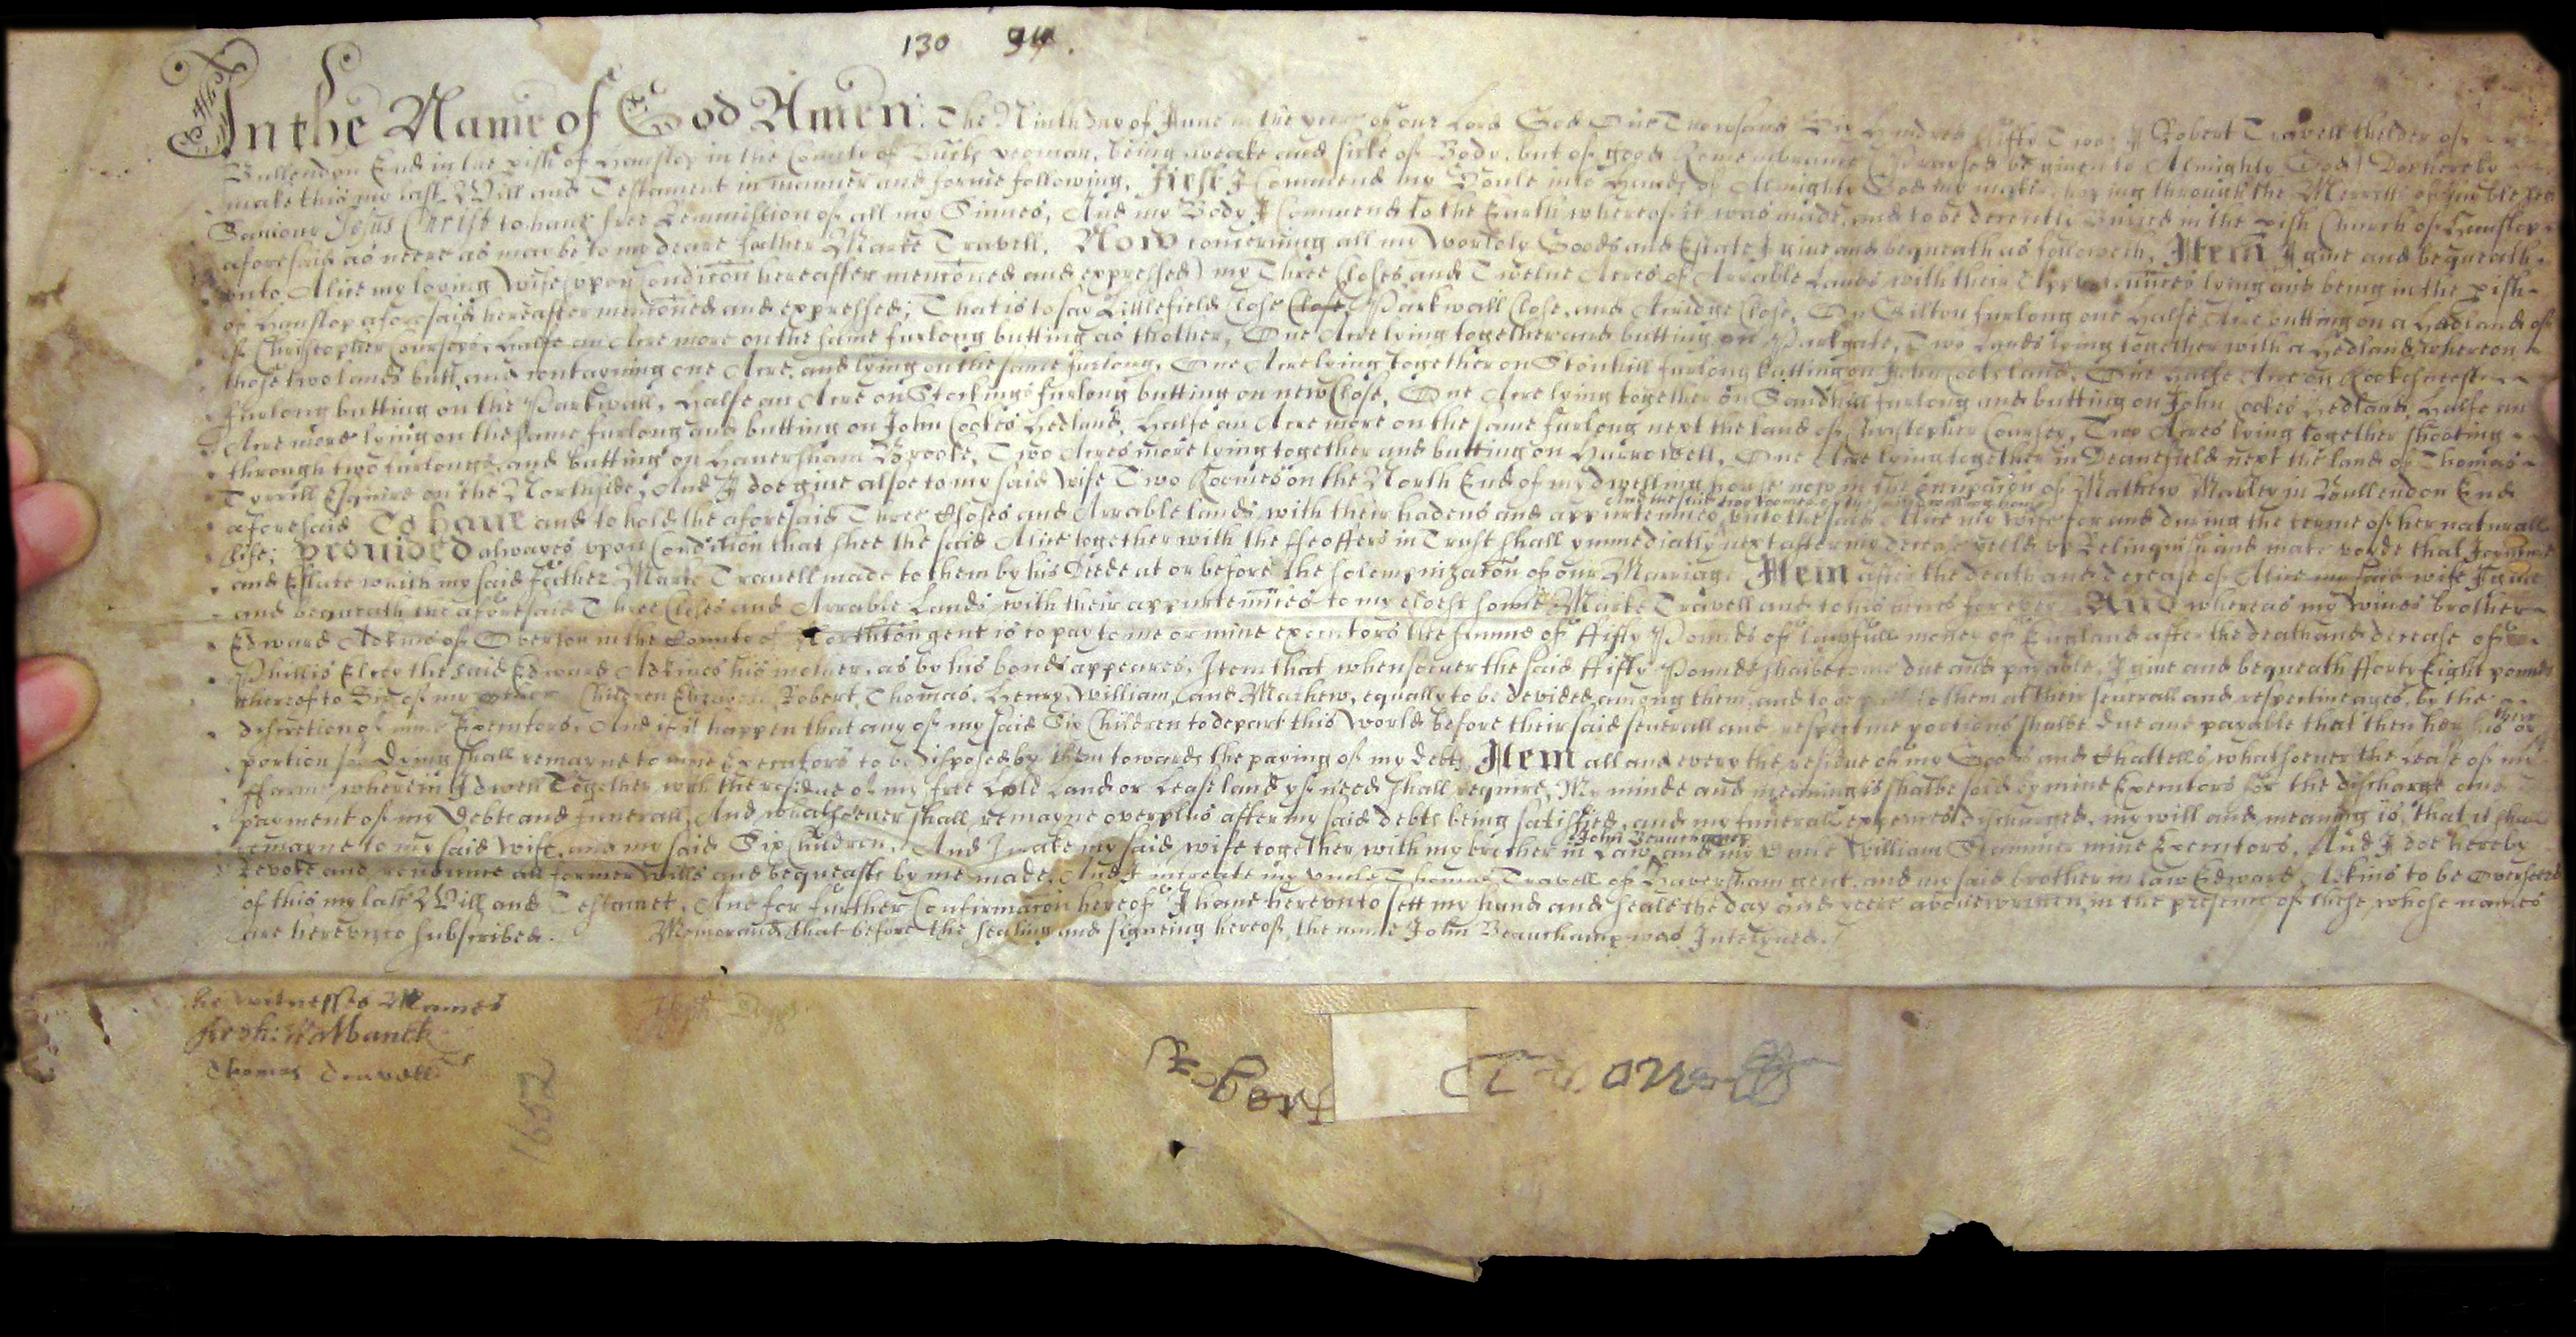 130 94
In the Name of God Amen. The Ninth day of June in the yeare of our Lord God One Thowsand Six Hundred Fiffty Two I Robert Travell thelder of
Bullendon End in the pish of Hanslop in the County of Bucks yeoman, being weake and sicke of Body, but of good Remembrance (Praysed be given to Almighty God) Doe hereby
make this my last Will and Testament in manner and forme following, First I Commend my Soule into hands of Almighty God my maker hoping through the Merritts of
Saviour Jesus Christ to haue free Remmission of all my Sinnes, And my Body I Commend to the Earth whereof it was made, and to be decently Buried in the pish Church of Hanslop
aforesaid as neere as may be to my deare father Marke Travell. Now concerning all my Worldly Goods and Estate I giue and bequeath as followeth, Item I giue and bequeath
vnto Alice my loving Wife (vpon Condicon hereafter menconed and expressed) my Three Closes and Twelue Acres of Arrable Lands with their lying and being in the pish
of Hanslop aforesaid hereafter menconed and expressed; That is to say Littlefield Close Close Parkwall Close, and Close, On furlong one Halfe Acre butting on a Hedland of
of Christopher Coursey, Halfe an Acre more on the same furlong butting as thother, One Acre lying together and butting on Parkgate, Two Lands lying together with a Hedland whereon
those two lands butt, and contayning one Acre, and lying on the same furlong, One Acre lying together on Stonhill furlong butting on John land, One Halfe Acre on
furlong butting on the Parkwall, Halfe an Acre on Stockings furlong butting on new Close, One Acre lying together on Sandhill furlong and butting on John Cookes Hedland, Halfe an
Acre more lying on the same furlong and butting on John Cookes Hedland, Halfe an Acre more on the same furlong next the land of Christopher Coursey, Two Acres lying together shooting
through two furlongs, and butting on Haversham Brooke, Two Acres more lying together and butting on Harrowell, One Acre lying together in Deanefield next the land of Thomas
Tyrrill Esquire on the Northside, And I doe giue alsoe to my said Wife Two Roomes on the North End of my dwelling house now in the occupacon of Mathew Marley in Bullendon End
and the said two roomes of
aforesaid To haue and to hold the aforesaid Three Closes and Arrable lands with their hadens and appurtennces vnto the said Alice my Wife for and during the terme of her naturall
life; prouided alwayes vpon Condition that shee the said Alice together with the ffeoffers in Trust shall ymmediatly next after my decease yeeld vp Relinquish and make voyde that Joynture
and Estate which my said father Marke Travell made to them by his Deede at or before the solempnizacon of our Marriage Item after the death and decease of Alice my said wife I giue
and bequeath the aforesaid Three Closes and Arrable Lands with their appurtennces to my eldest sonne Marke Travell and to his heires for ever And whereas my Wiues brother
Edward Adkins of Overton in the County of Northton gent is to pay to me or mine executors the summe of ffifty Pounds of lawfull money of England after the death and decease of
Phillis the said Edward Adkines his mother, as by his bond appeares, Item that whensoever the said ffifty Pounds shalbecome due and payable, I giue and bequeath fforty Eight pounds
thereof to Six of my Children Robert, Thomas, Henry, William, and Mathew, equally to be devided among them, and to be to them at their severall and respectiue ages, by the
discretion of mine Executors, And if it happen that any of my said Six Children to depart this World before their said severall and respectiue portions shalbe due and payable that then her his or their
portion soe Dying shall remayne to mine Executors to be disposed by them towards the paying of my debts Item all and every the residue of my Goods and Chattells whatsoever the Lease of my
ffarme wherein I dwell Together with the residue of my free hold Land or Lease land yf need shall require, My minde and meaning is shalbe sold by mine Executors for the discharge and
payment of my Debts and funerall, And whatsoever shall remayne overplus after my said debts being satisfied, and my funerall expences discharged, my will and meaning is, that it shall
John Beauchampe
remayne to my said Wife, and my said Six Children, And I make my said wife together with my brother in Law and my William mine Executors, And I doe hereby
Revoke and renounce all former Wills and bequeasts by me made, And I intreate my vncle Thomas Travell of Haversham gent, and my said brother in law Edward Adkins to be Overseers
of this my last Will and Testamet, And for further Confirmacon hereof I haue herevnto sett my hand and seale the day and yeere abouewritten, in the presence of these whose names
are herevnto subscribed. Memorand that before the sealing and signeing hereof, the name John Beauchamp was Interlyned.
he witnesses Names
Thomas Travell
1652
Robert Travell